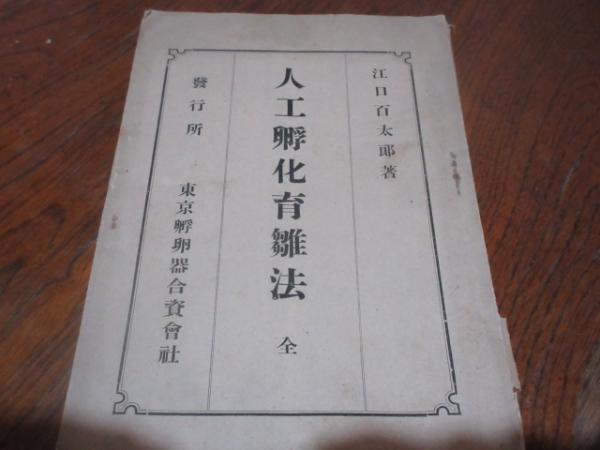 江口百太郎著
人工孵化育雛法 全
發行所 東京孵卵器合資會社